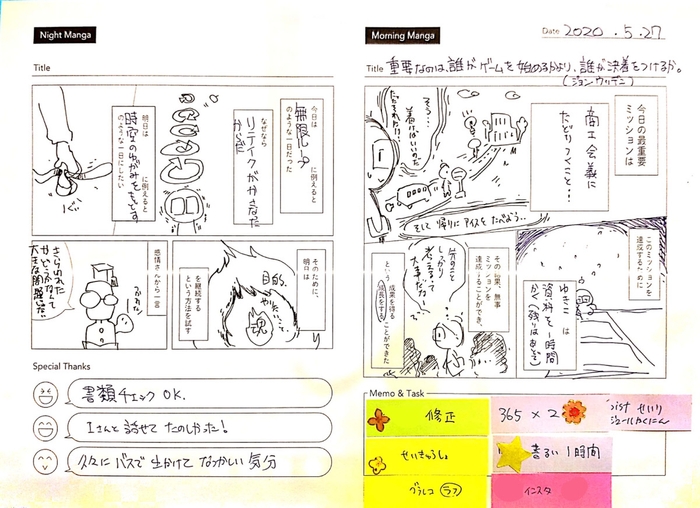 Night Manga
Title
今日は
無限ループ
に例えると
のような一日だった
なぜなら
リテイクがやまなかった
からだ
明日は
に例えると
時空のゆがみをもどす
のような一日にしたい
ぐい
そのために、
明日は
目的、
やりたいこと
を継続する
という方法を試す
感情さんから一言
大きな間違いな
Special Thanks
書類チェックOK.
Iさんと話せて たのしかった!
久々に バスで出かけて なつかしい気分
Morning Manga
Date 2020.5.27
Title 重要なのは、誰がゲームを始めるかより、誰が決着をつけるか。
(ジョン・ウッデン)
今日の最重要
ミッションは
商工会議に
たどりつくこと…
そう…
着けばいいわ
そして 帰りにアイスをたべよう…
このミッションを
達成するために
ゆきこ は
資料を1時間
かく(残りはあとで)
その結果、無事
ミッションを
達成することができ、
先のこと
しっかり
考えるって
大事だな!
という 成果を得る
成長をする
ことができた
Memo & Task
修正
365×2
せいり
せいきゅうしょ
書るい1時間
グラレコ ラフ
インスタ